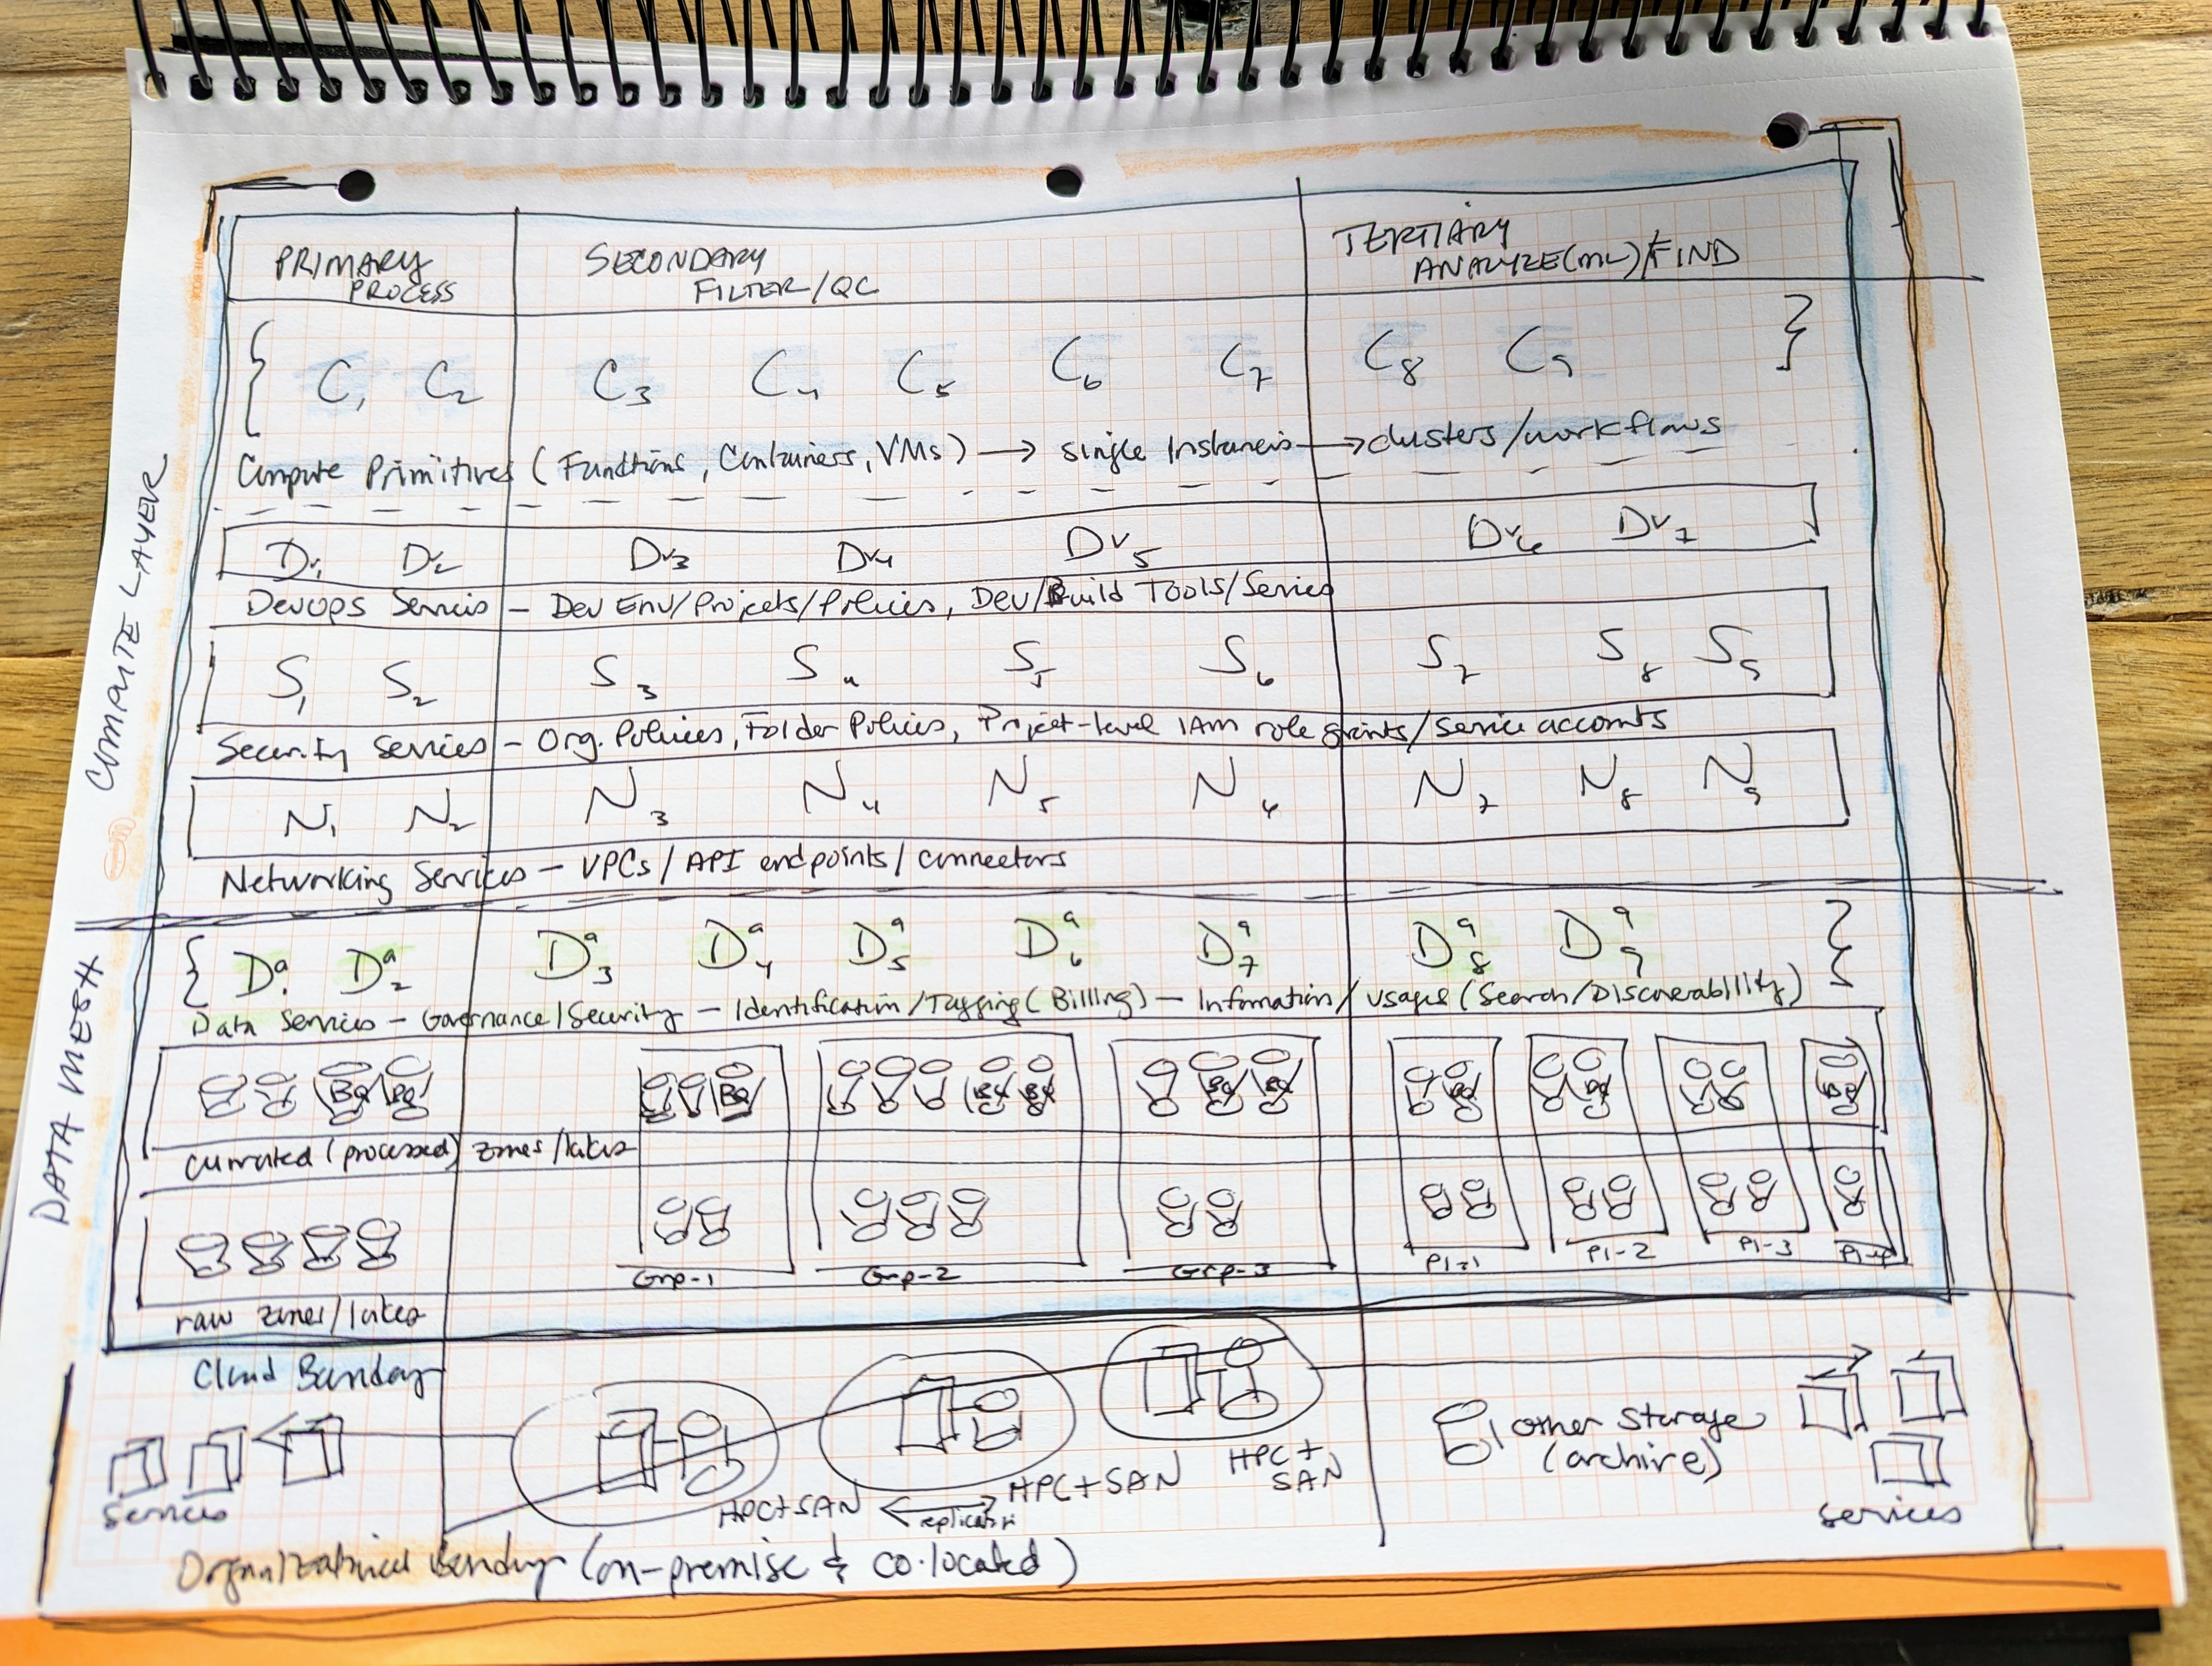 PRIMARY
PROCESS
SECONDARY
FILTER/QC
TERTIARY
ANALYZE(ML)/FIND
{ C1 C2 C3 C4 C5 C6 C7 C8 C9 }
Compute Primitives (Functions, Containers, VMs) → single Instances → clusters/workflows
COMPUTE LAYER
Dv1 Dv2 Dv3 Dv4 Dv5 Dv6 Dv7
DevOps Services - Dev Env/Projects/Policies, Dev/Build Tools/Services
S1 S2 S3 S4 S5 S6 S7 S8 S9
Security Services - Org. Policies, Folder Policies, Project-level IAM role grants/service accounts
N1 N2 N3 N4 N5 N6 N7 N8 N9
Networking Services - VPCs / API endpoints / connectors
DATA MESH
{ Da1 Da2 Da3 Da4 Da5 Da6 Da7 Da8 Da9 }
Data Services - Governance/Security - Identification/Tagging (Billing) - Information/usages (Search/Discoverability)
BQ BQ BQ BQ BQ BQ BQ BQ BQ BQ
currated (processed) zones/lakes
Grp-1 Grp-2 Grp-3 PI-1 PI-2 PI-3 PI-4
raw zones/lakes
Cloud Boundary
Services
HPC+SAN
replication
HPC+SAN
HPC+
SAN
other storage
(archive)
Services
Organizational Boundary (on-premise & co-located)